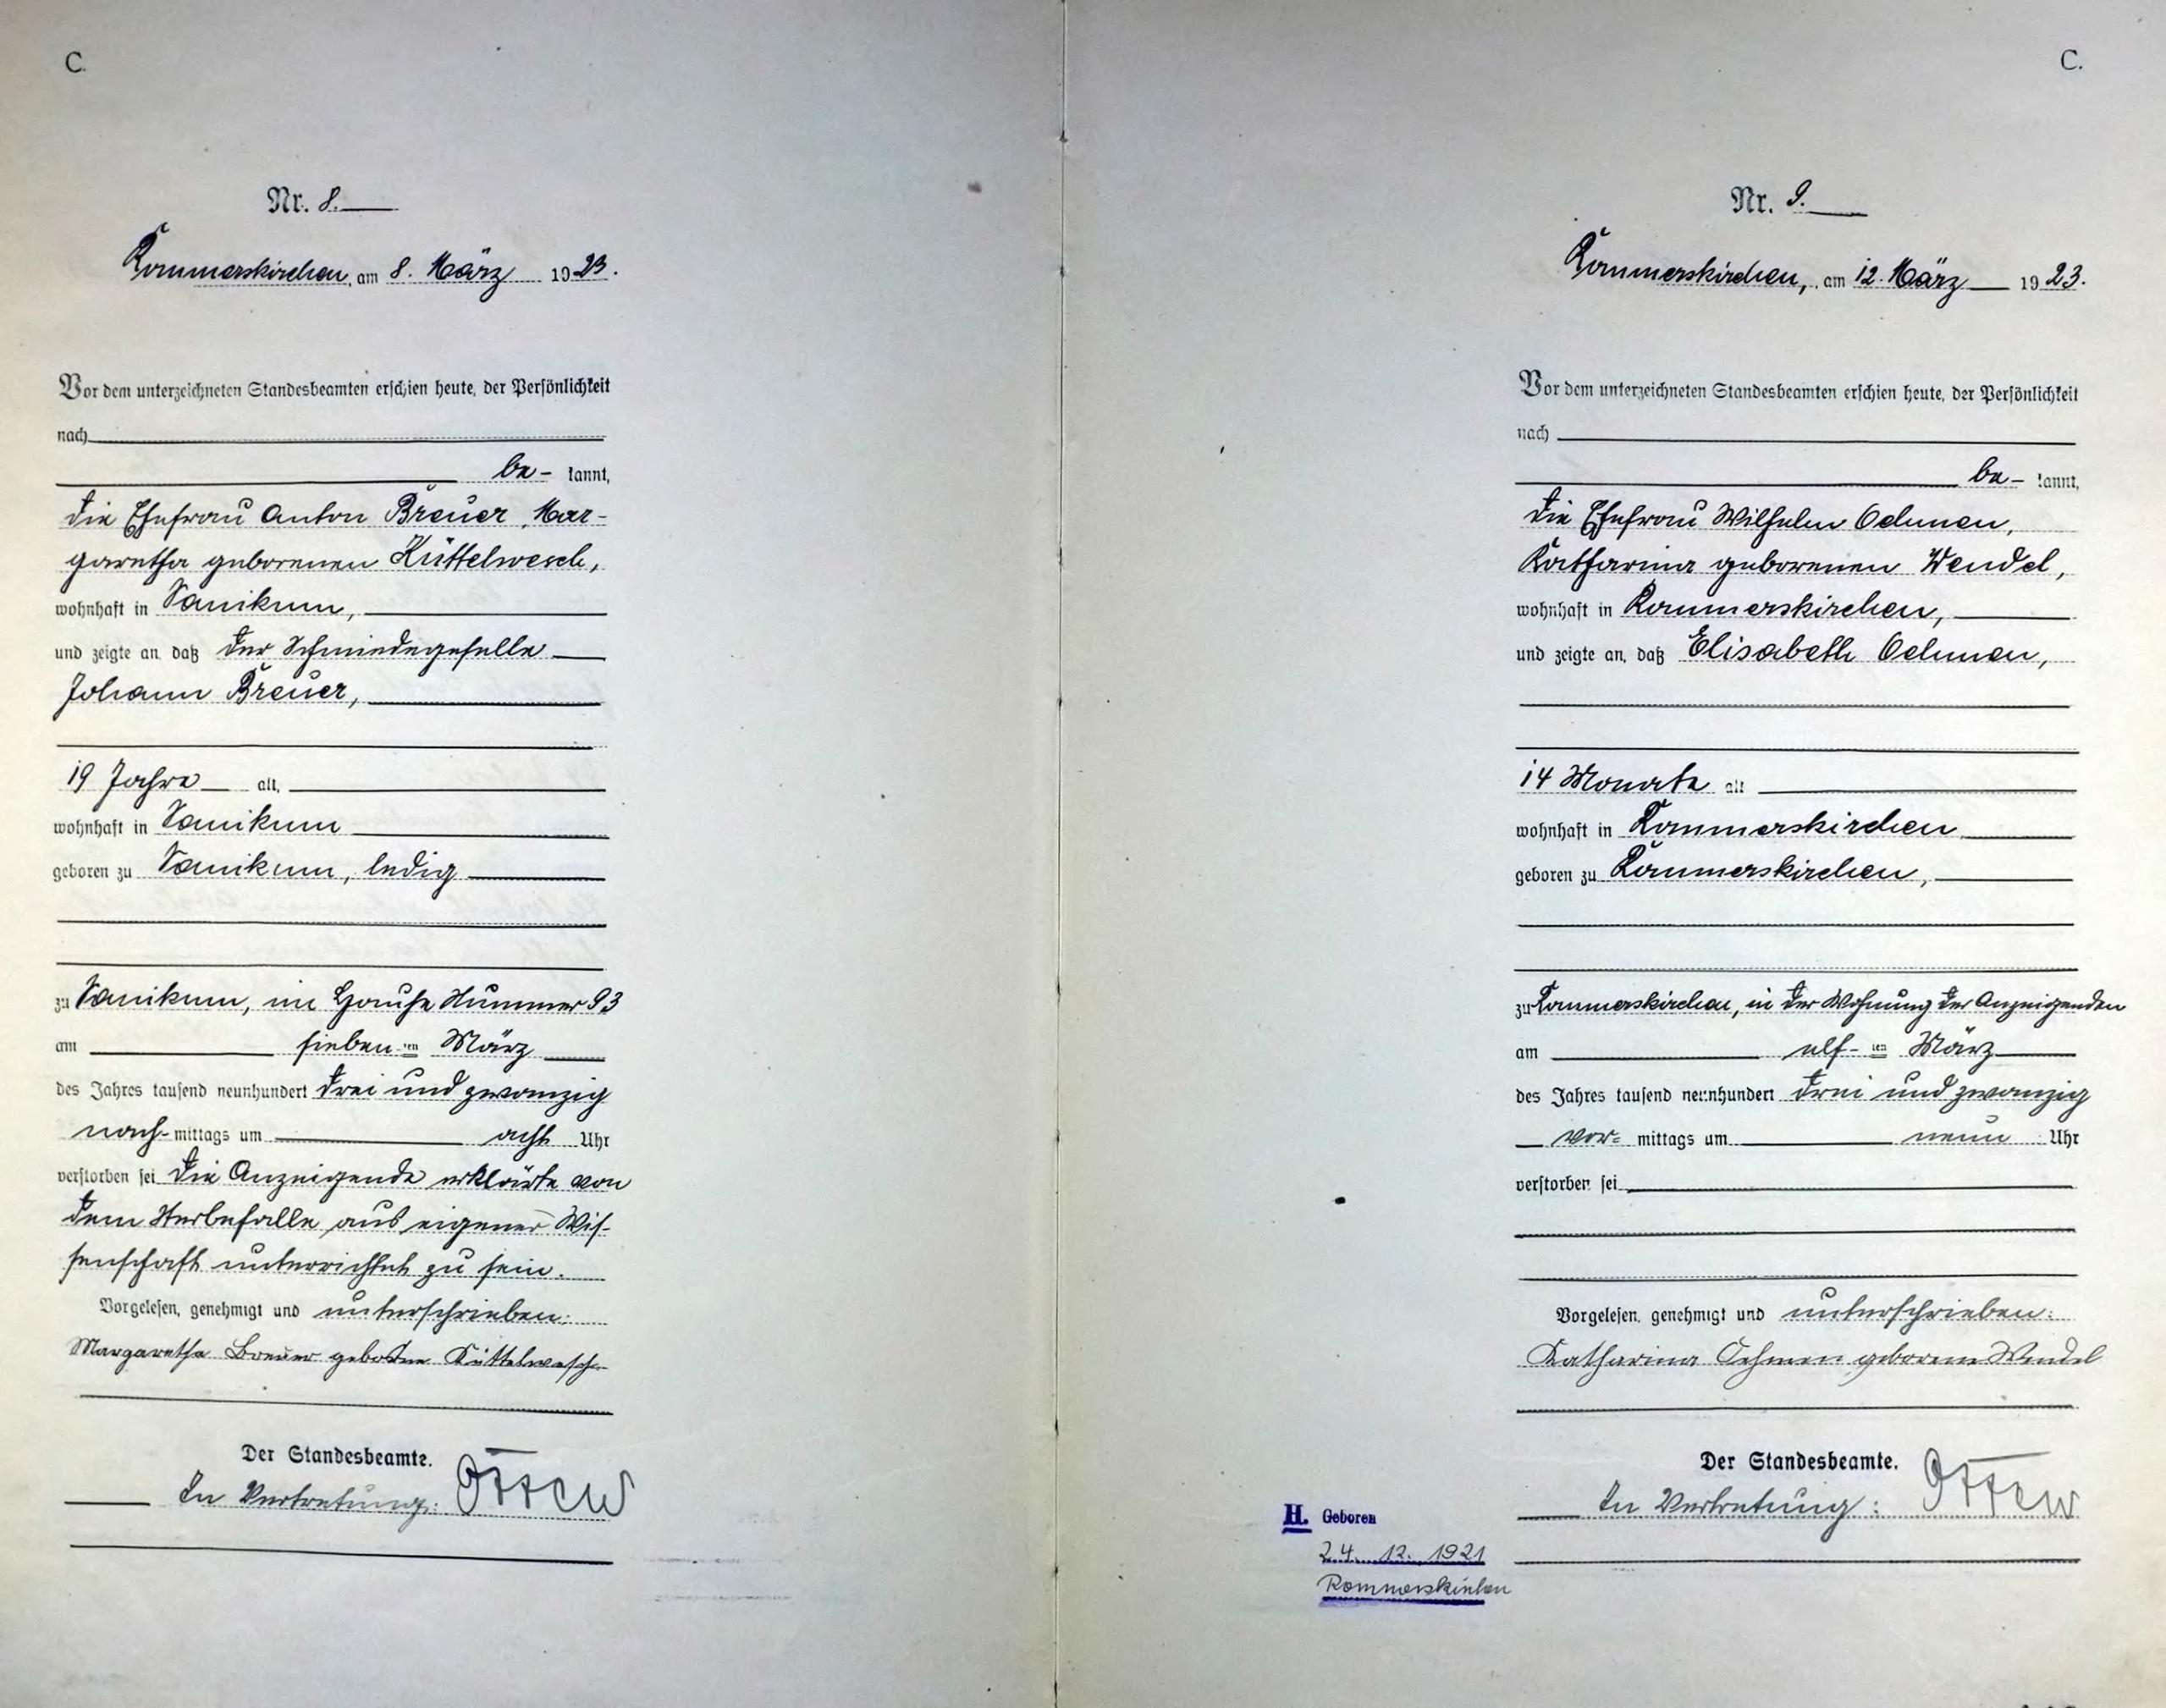 C.
Nr. 8.
Rommerskirchen, am 8. März 1923.
Vor dem unterzeichneten Standesbeamten erschien heute, der Persönlichkeit
nach
be- kannt,
die Ehefrau Anton Breuer, Mar-
garetha geborenen Küttelwesch,
wohnhaft in Vanikum,
und zeigte an, daß der Schmiedegeselle
Johann Breuer,
19 Jahre alt,
wohnhaft in Vanikum
geboren zu Vanikum, ledig
zu Vanikum, im Hause Nummer 93
am sieben ten März
des Jahres tausend neunhundert drei und zwanzig
nach- mittags um acht Uhr
verstorben sei. Die Anzeigende erklärte von
dem Sterbefalle aus eigener Wis-
senschaft unterrichtet zu sein.
Vorgelesen, genehmigt und unterschrieben:
Margaretha Breuer geborne Küttelwesch
Der Standesbeamte.
In Vertretung: Otten
C.
Nr. 9.
Rommerskirchen, am 12. März 1923.
Vor dem unterzeichneten Standesbeamten erschien heute, der Persönlichkeit
nach
be- kannt,
die Ehefrau Wilhelm Oehmen,
Katharina geborenen Wendel,
wohnhaft in Rommerskirchen,
und zeigte an, daß Elisabeth Oehmen,
14 Monate alt
wohnhaft in Rommerskirchen
geboren zu Rommerskirchen,
zu Rommerskirchen, in der Wohnung der Anzeigenden
am elf- ten März
des Jahres tausend neunhundert drei und zwanzig
vor- mittags um neun Uhr
verstorben sei
Vorgelesen, genehmigt und unterschrieben:
Katharina Oehmen geborene Wendel
Der Standesbeamte.
In Vertretung: Otten
H. Geboren
24. 12. 1921
Rommerskirchen